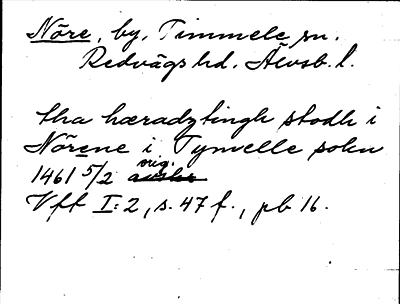 Nöre, by, Timmele sn.
Redvägs hd. Älvsb. l.
tha hæradztingh stodh i
Nörene i Tymelle sokn
orig.
1461 5/2
Vff I:2, s. 47 f., pb 16.